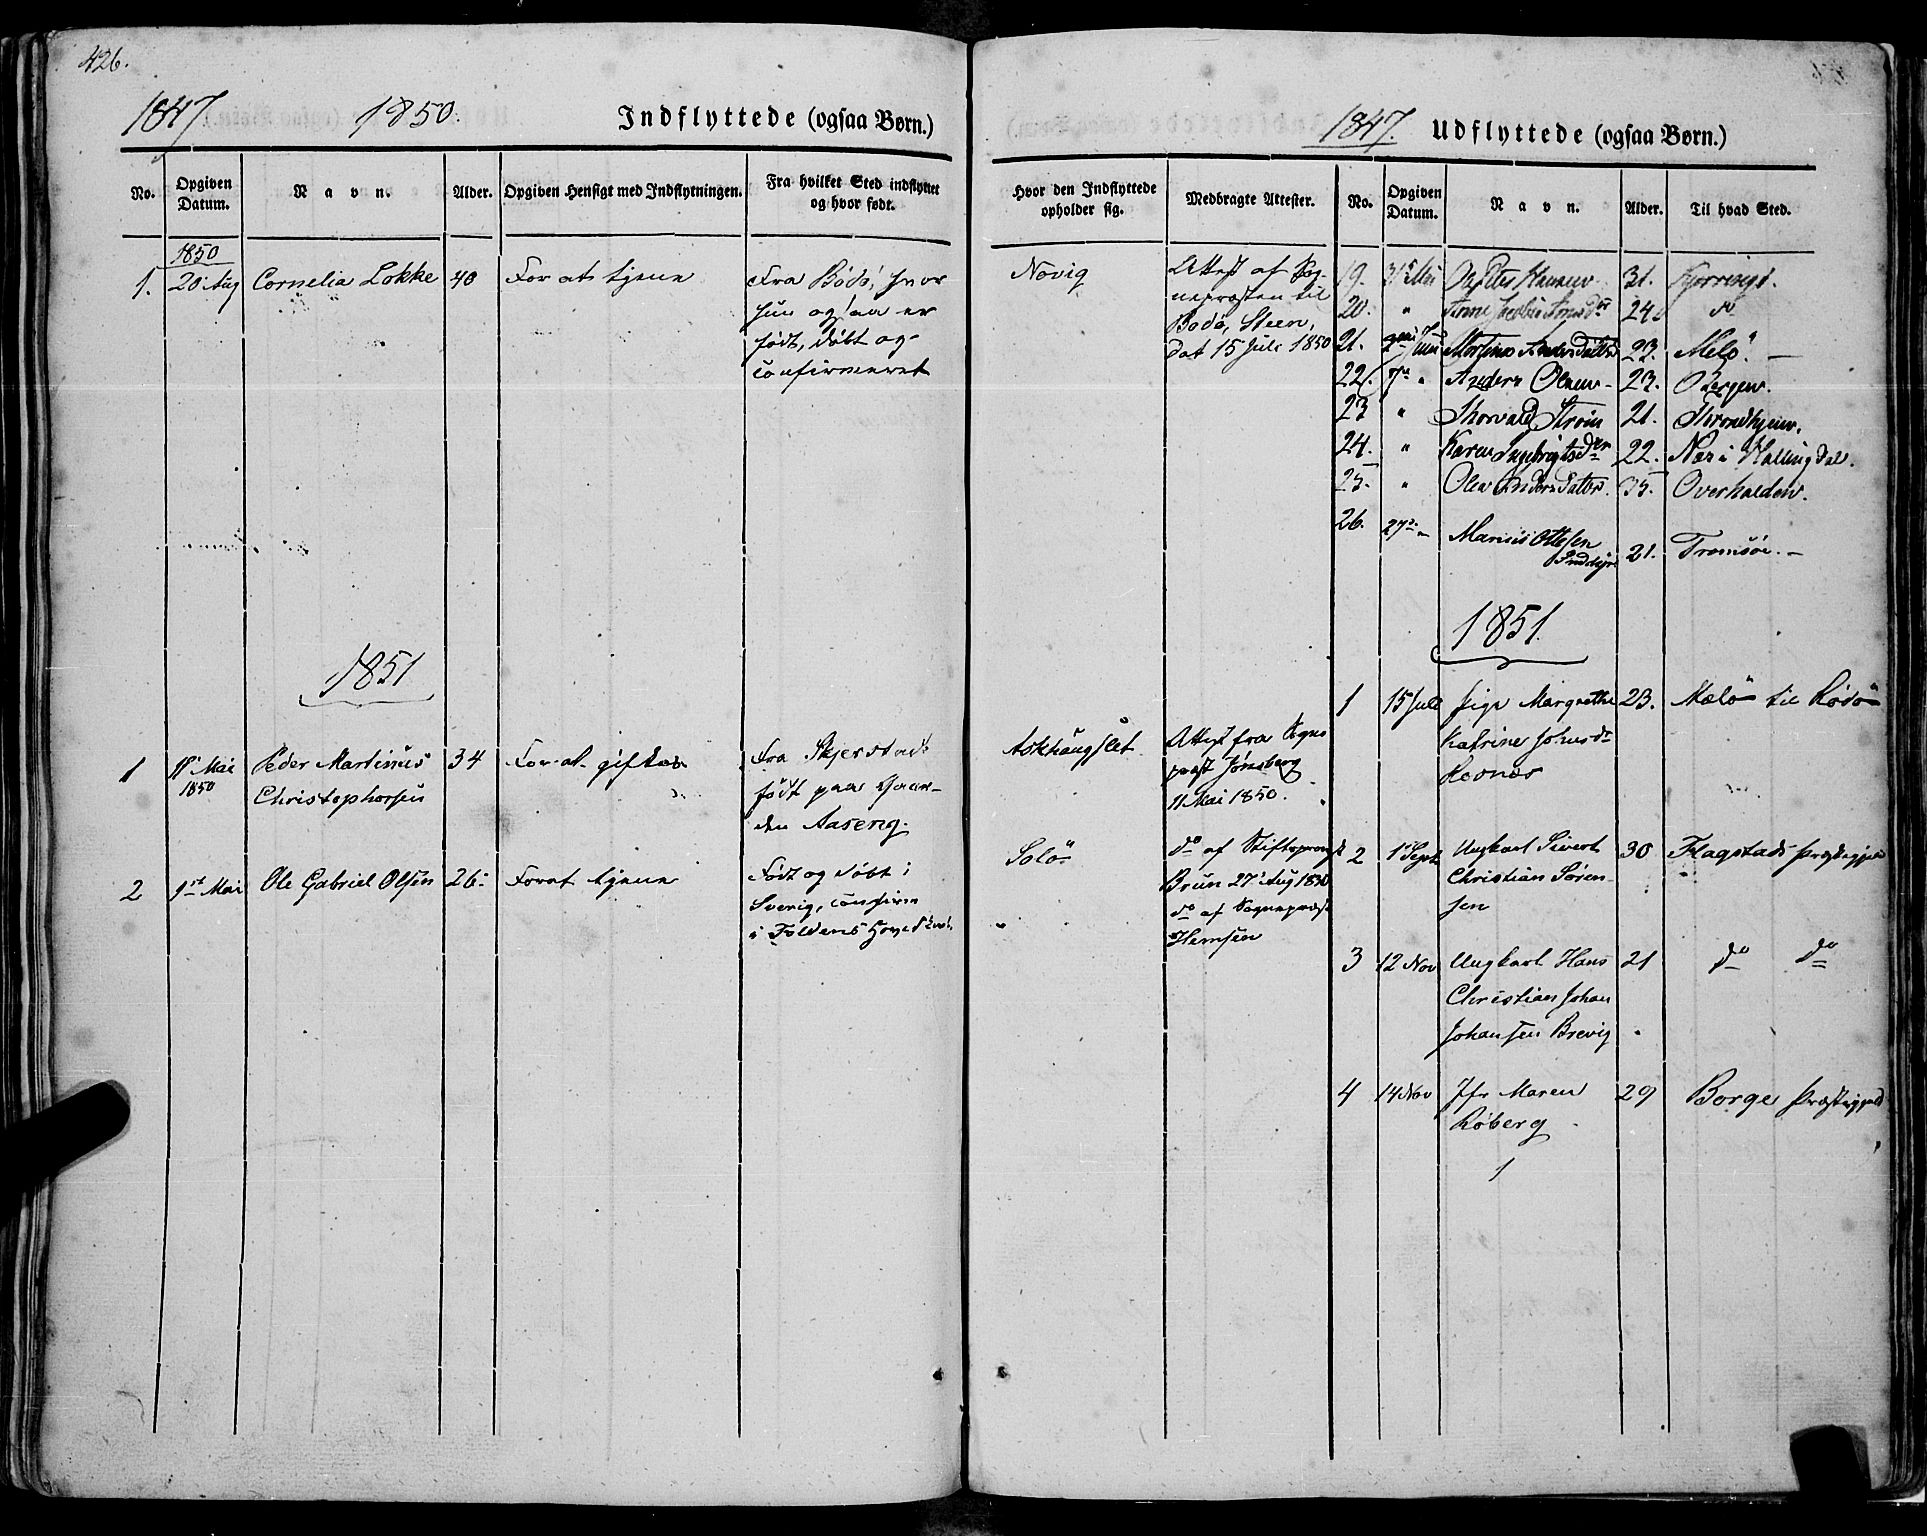 426.
1847 1850. Indflyttede (ogsaa Børn.)
No. Opgiven Datum. Navn. Alder. Opgiven Hensigt med Indflytningen. Fra hvilket Sted indflyttet og hvor født.
1850
1. 20 Aug Cornelia Løkke 40 For at tjene Fra Bodø, hvor
hun ogsaa er
født, døbt og
confirmeret
1851
1 11 Mai Peder Martinus 34 For at giftes Fra Skjerstad
1850 Christophersen født paa Gaar-
den Aaseng.
2 9de Mai Ole Gabriel Olsen 26 For at tjene Født og døbt i
Sverig, confirm
i Foldens
Hvor den Indflyttede opholder sig. Medbragte Attester.
Novig Attest af Sog-
nepræsten til
Bodø, Steen,
dat 15 Juli 1850
Attest fra Sogne
præst Jønsberg
11 Mai 1850.
Solø do af Stiftsprovst
Brun 27 Aug
do af Sognepræst
Hemsen
1847. Udflyttede (ogsaa Børn.)
No. Opgiven Datum. Navn. Alder. Til hvad Sted.
19. 31 Mai Hansen 31.
20. " 24 do
21. Andersdatter 23. Melø. —
22. 7de " Anders Olsen 23. Bergen.
23 " Thorvald Strøm 21. Throndhjem.
24. " Karen Ingebrigtsdr 22. Næs i Hallingdal.
25. " Olea Andersdatter. 35. Overhalden.
26. 27de " Marius Ottesen
21. Tromsøe. —
1851.
1 15 Juli Pige Margrethe 23. Melø til Rødø
Katrine Johnsdr
2 1 Sept Ungkarl Sivert 30 Flagstads Præstegjeld
Christian Søren-
sen
3 12 Nov Ungkarl Hans 21 do do
Christian Johan
Johansen Brevig
4 14 Nov Jfr Maren 29 Borge Præstegjeld
Røberg